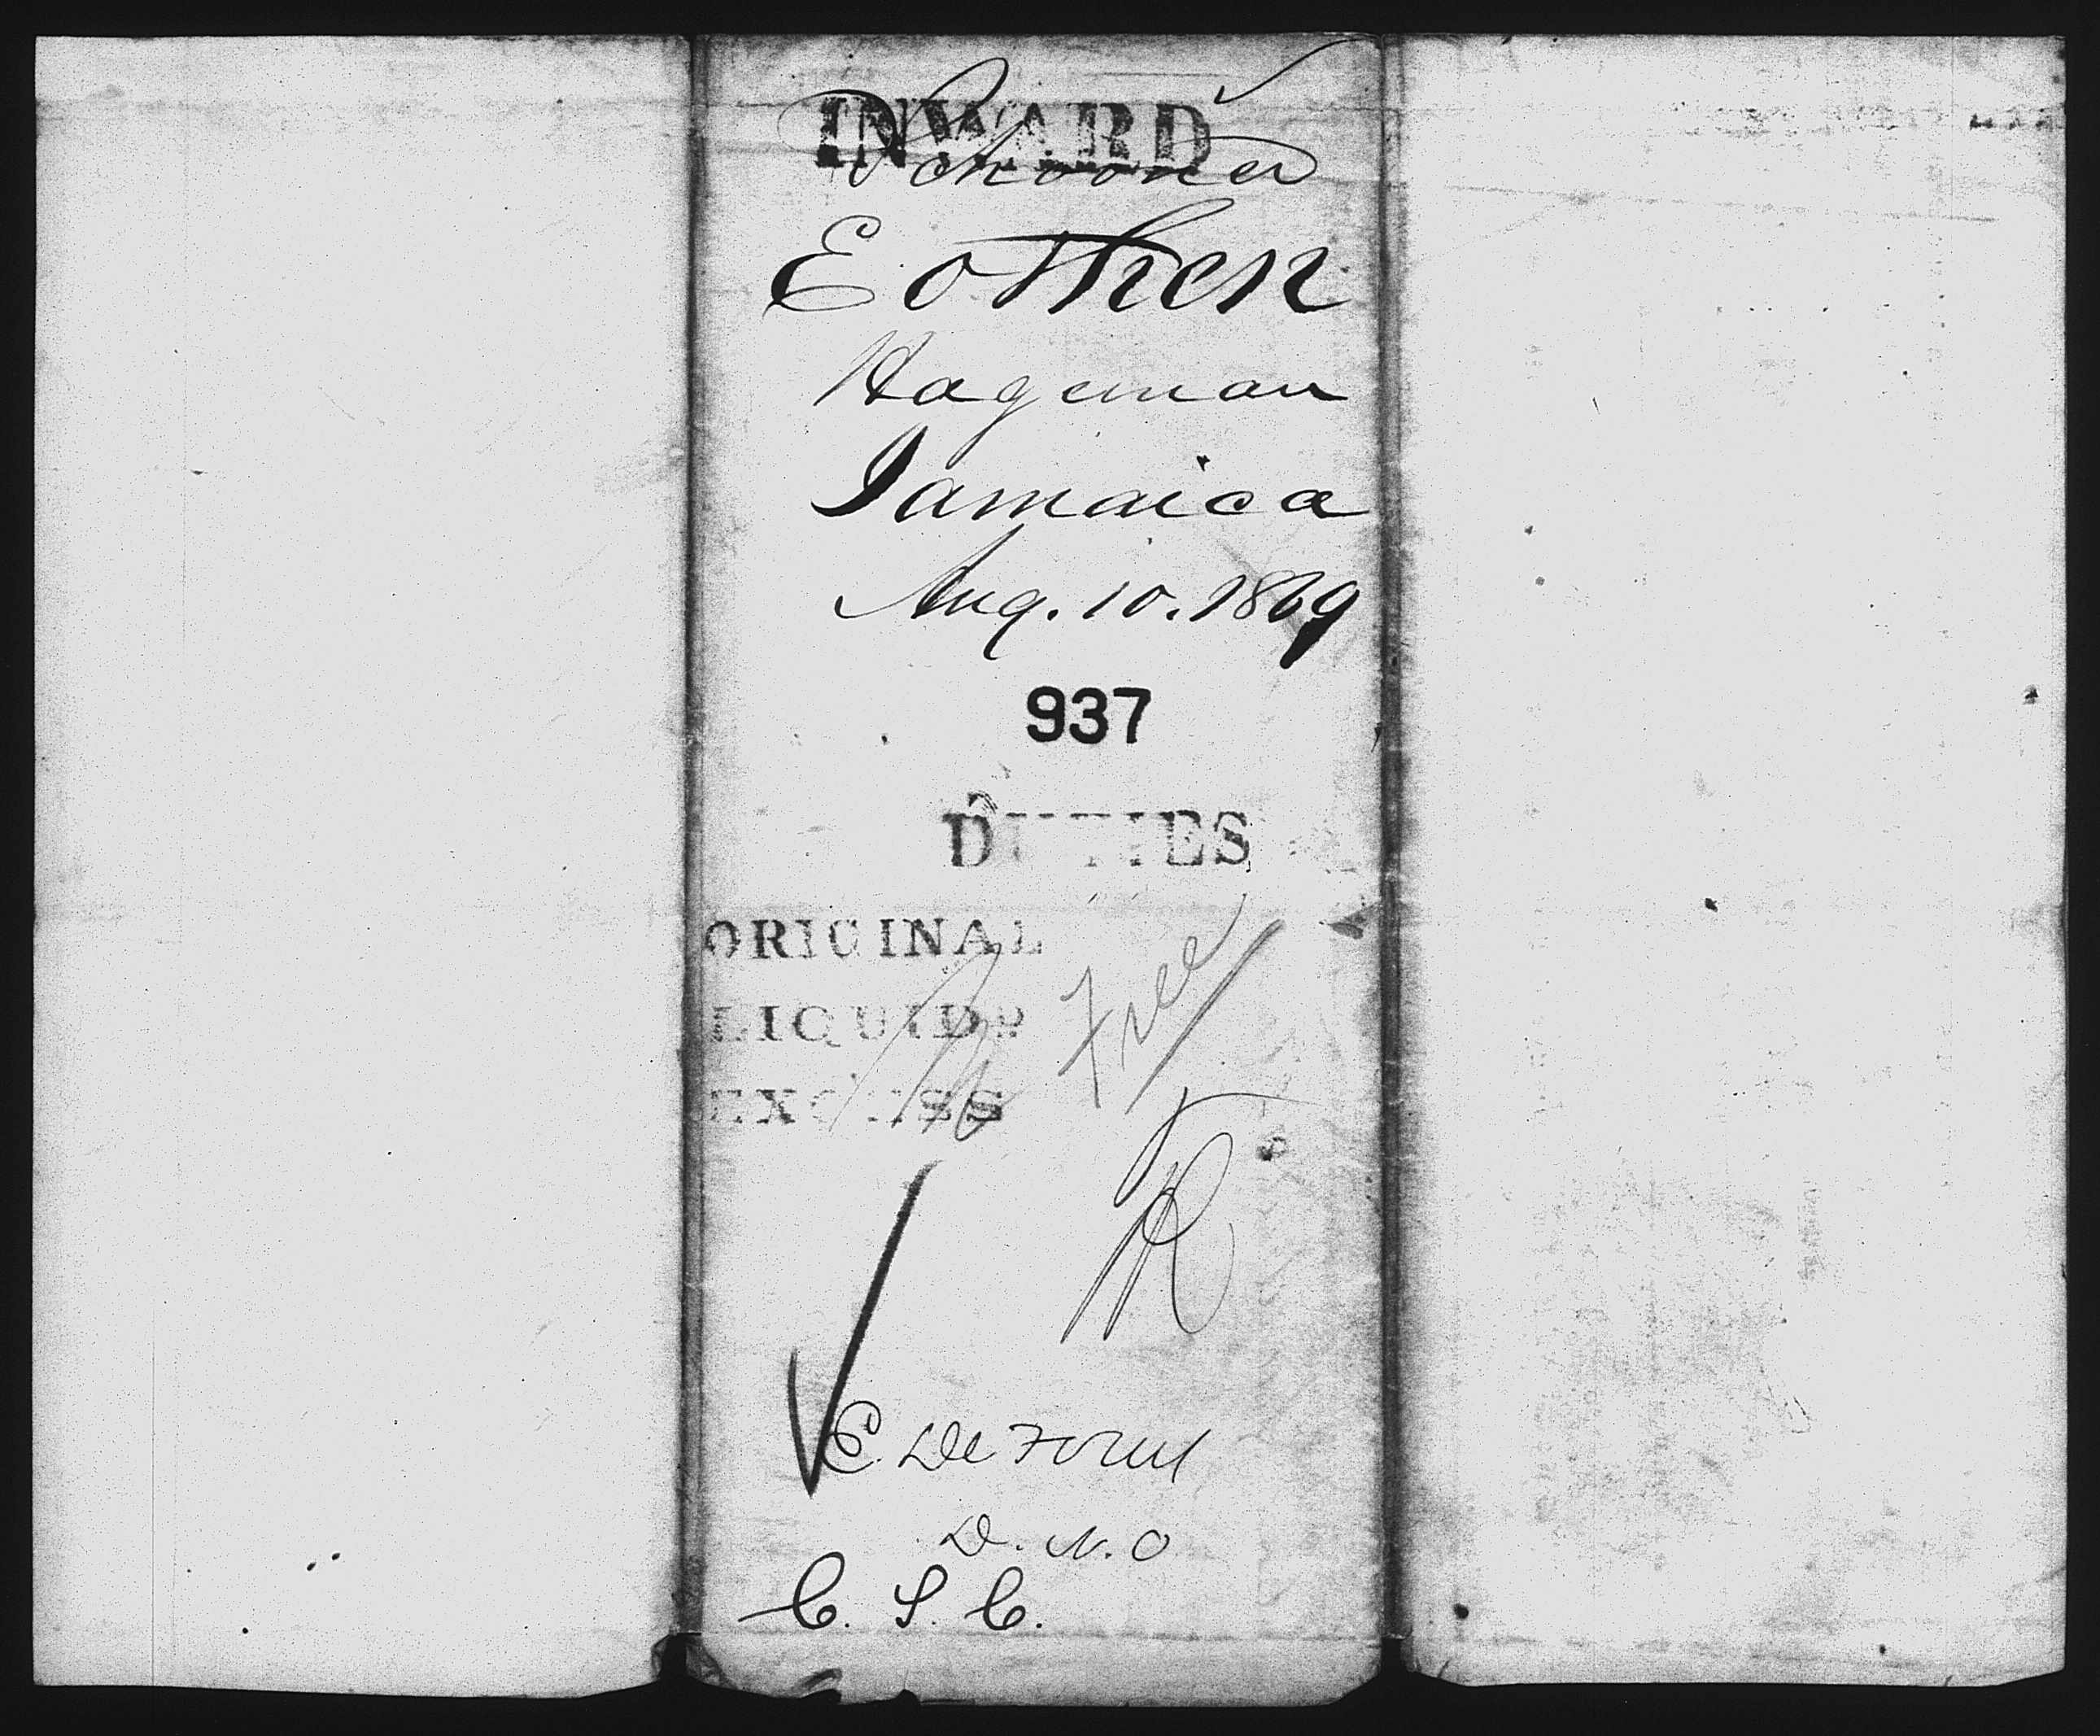 INWARD
Schooner
Eothen
Hageman
Jamaica
Aug. 10. 1869
937
DUTIES
ORIGINAL
Free
LIQUIDD
EXCESS
R
E. De Forest
D. N. O
C. S. C.